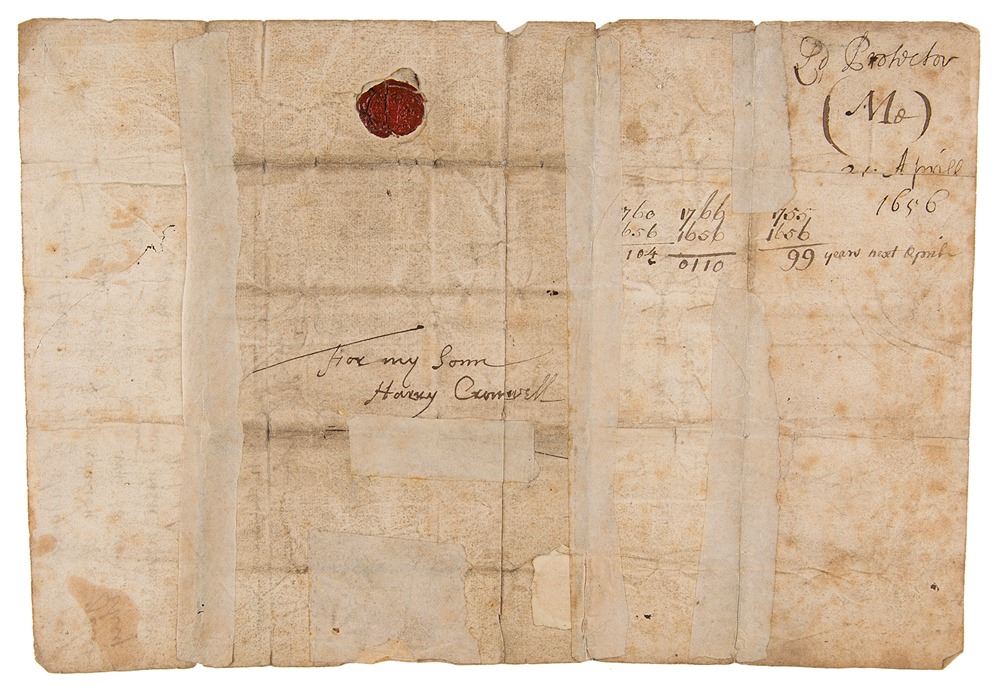 Ld Protector
(Me)
21. Aprill
1656
1760
1656
104
1766
1656
0110
1755
1656
99 years next April
For my Sonn
Harry Cromwell